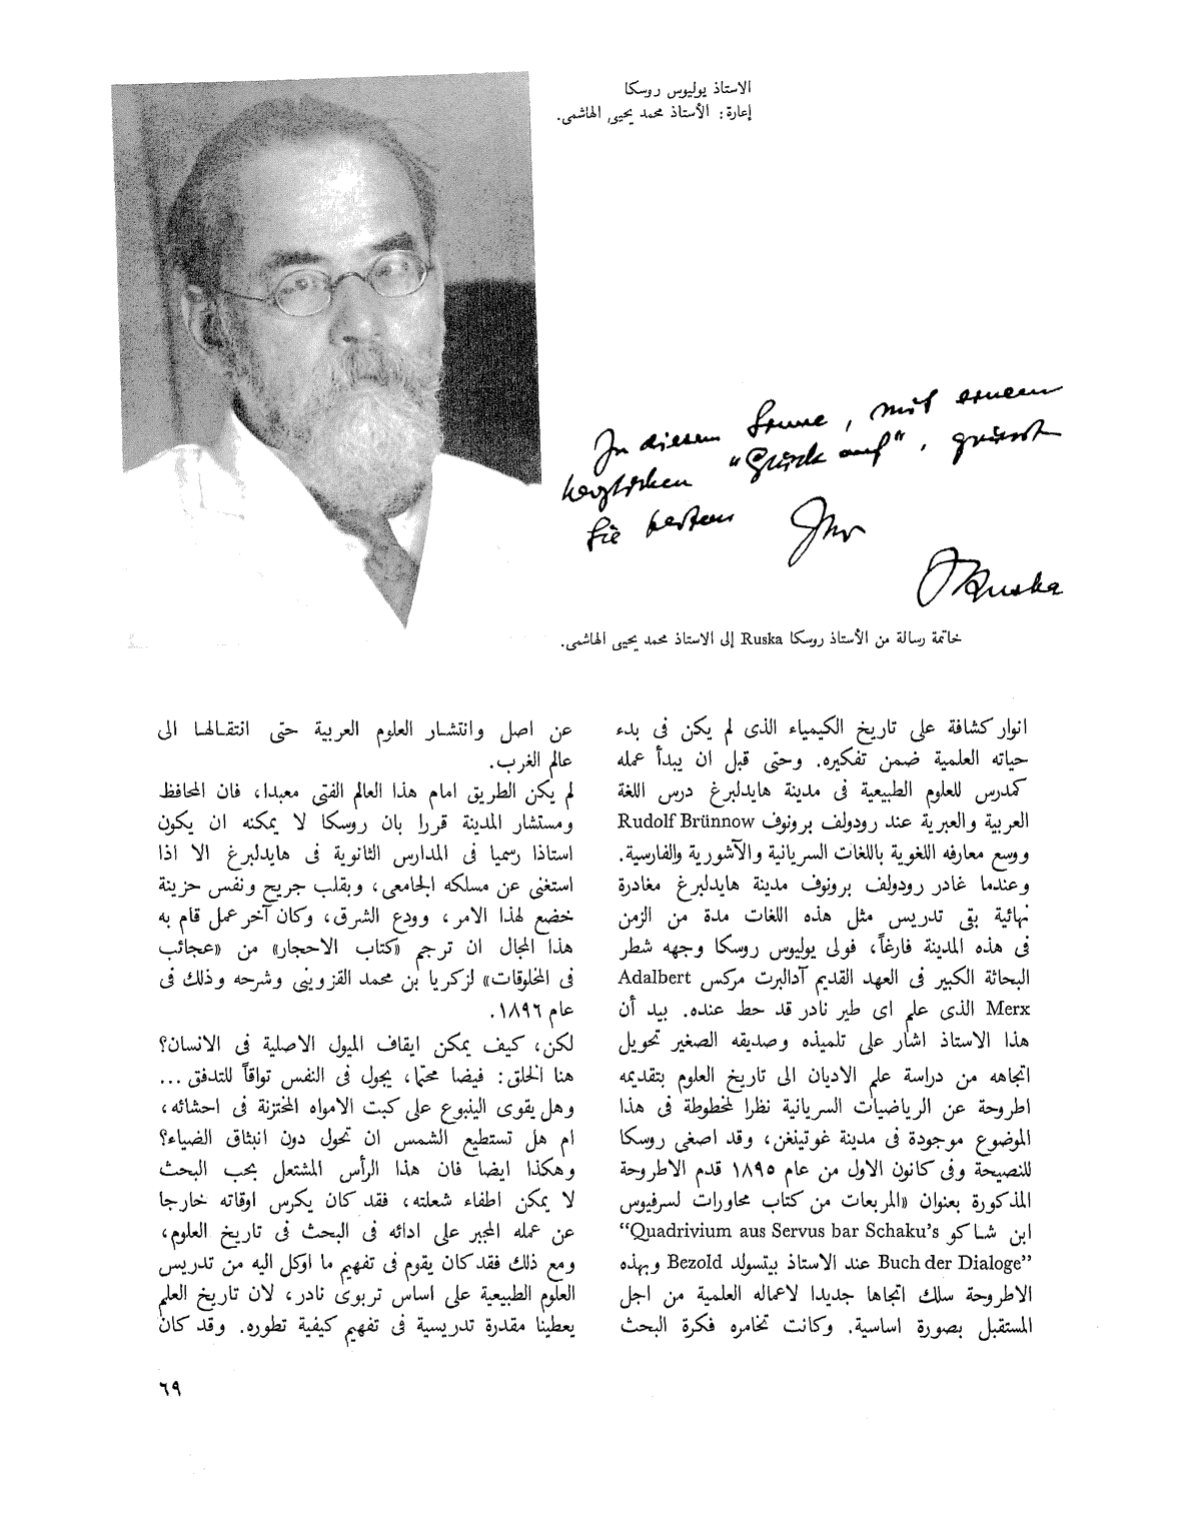 الاستاذ يوليوس روسكا
إعارة: الأستاذ محمد يحيى الهاشمى.
In diesem Sinne, mit einem
herzlichen "Glück auf", grüsst
Sie bestens Ihr
JRuska
خاتمة رسالة من الأستاذ روسكا Ruska إلى الاستاذ محمد يحيى الهاشمى.
انوار كشافة على تاريخ الكيمياء الذى لم يكن فى بدء
حياته العلمية ضمن تفكيره. وحتى قبل ان يبدأ عمله
كمدرس للعلوم الطبيعية فى مدينة هايدلبرغ درس اللغة
العربية والعبرية عند رودولف برونوف Rudolf Brünnow
ووسع معارفه اللغوية باللغات السريانية والآشورية والفارسية.
وعندما غادر رودولف برونوف مدينة هايدلبرغ مغادرة
نهائية بقى تدريس مثل هذه اللغات مدة من الزمن
فى هذه المدينة فارغاً، فولى يوليوس روسكا وجهه شطر
البحاثة الكبير فى العهد القديم آدالبرت مركس Adalbert
Merx الذى علم اى طير نادر قد حط عنده. بيد أن
هذا الاستاذ اشار على تلميذه وصديقه الصغير تحويل
اتجاهه من دراسة علم الاديان الى تاريخ العلوم بتقديمه
اطروحة عن الرياضيات السريانية نظرا لمخطوطة فى هذا
الموضوع موجودة فى مدينة غوتينغن، وقد اصغى روسكا
للنصيحة وفى كانون الاول من عام ١٨٩٥ قدم الاطروحة
المذكورة بعنوان «المربعات من كتاب محاورات لسرفيوس
ابن شاكو “Quadrivium aus Servus bar Schaku's
Buch der Dialoge” عند الاستاذ بيتسولد Bezold وبهذه
الاطروحة سلك اتجاها جديدا لاعماله العلمية من اجل
المستقبل بصورة اساسية. وكانت تخامره فكرة البحث
عن اصل وانتشار العلوم العربية حتى انتقالها الى
عالم الغرب.
لم يكن الطريق امام هذا العالم الفتى معبدا، فان المحافظ
ومستشار المدينة قررا بان روسكا لا يمكنه ان يكون
استاذا رسميا فى المدارس الثانوية فى هايدلبرغ الا اذا
استغنى عن مسلكه الجامعى، وبقلب جريح ونفس حزينة
خضع لهذا الامر، وودع الشرق، وكان آخر عمل قام به
هذا المجال ان ترجم «كتاب الاحجار» من «عجائب
فى المخلوقات» لزكريا بن محمد القزوينى وشرحه وذلك فى
عام ١٨٩٦.
لكن، كيف يمكن ايقاف الميول الاصلية فى الانسان؟
هنا الخلق: فيضا محتما، يجول فى النفس تواقاً للتدفق ...
وهل يقوى الينبوع على كبت الامواه المختزنة فى احشائه،
ام هل تستطيع الشمس ان تحول دون انبثاق الضياء؟
وهكذا ايضا فان هذا الرأس المشتعل بحب البحث
لا يمكن اطفاء شعلته، فقد كان يكرس اوقاته خارجا
عن عمله المجبر على ادائه فى البحث فى تاريخ العلوم،
ومع ذلك فقد كان يقوم فى تفهيم ما اوكل اليه من تدريس
العلوم الطبيعية على اساس تربوى نادر، لان تاريخ العلم
يعطينا مقدرة تدريسية فى تفهم كيفية تطوره. وقد كان
٦٩